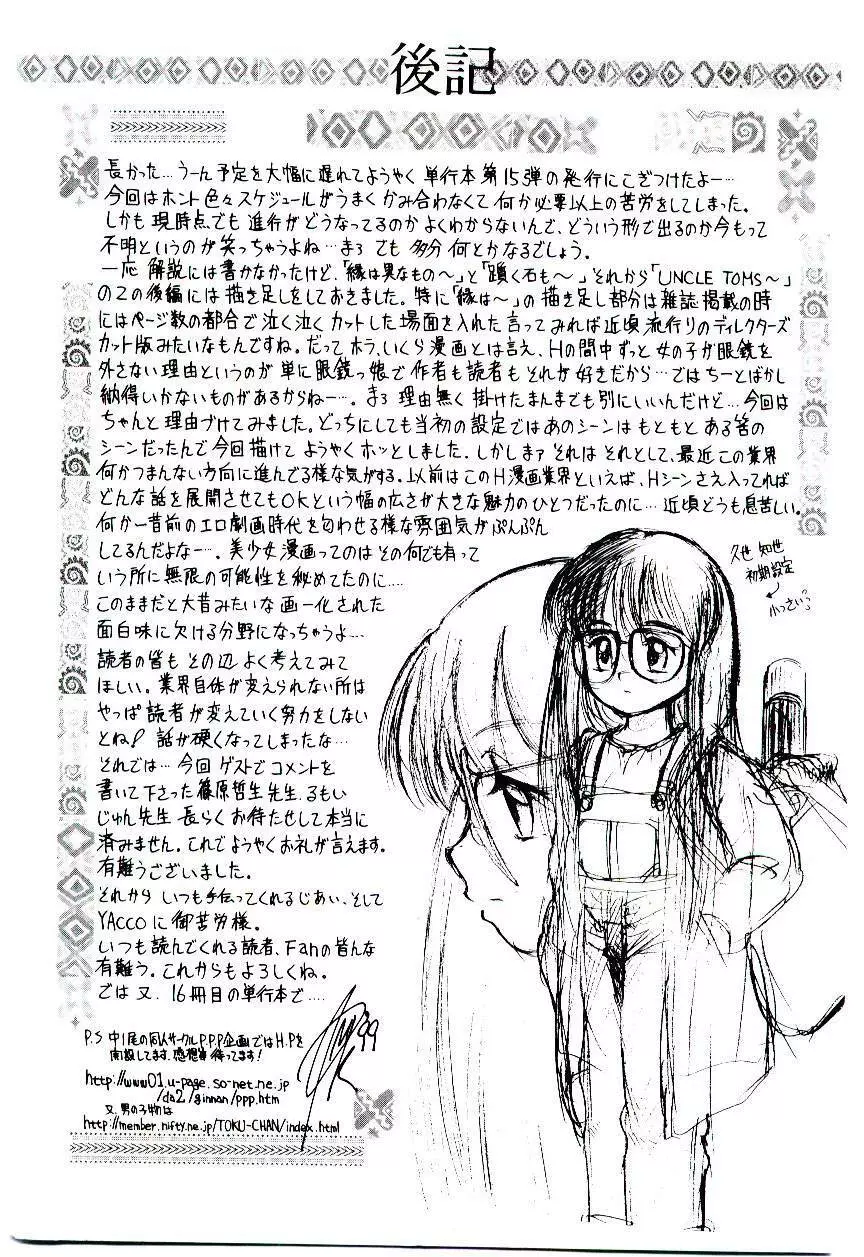 後記
長かった…うーん予定を大幅に遅れてようやく単行本第15弾の発行にこぎつけたよー…
今回はホント色々スケジュールがうまくかみ合わなくて何か必要以上の苦労をしてしまった。
しかも現時点でも進行がどうなってるのかよくわからないんで、どういう形で出るのか今もって
不明というのが笑っちゃうよね…まぁでも多分何とかなるでしょう。
一応解説には書かなかったけど、「縁は異なもの〜」と「躓く石も〜」それから「UNCLE TOMS〜」
の2の後編には描き足しをしておきました。特に「縁は〜」の描き足し部分は雑誌掲載の時
にはページ数の都合で泣く泣くカットした場面を入れた言ってみれば近頃流行りのディレクターズ
カット版みたいなもんですね。だってホラ、いくら漫画とは言え、Hの間中ずっと女の子が眼鏡を
外さない理由というのが単に眼鏡っ娘で作者も読者もそれが好きだから…ではちーとばかし
納得いかないものがあるからねー…。まぁ理由無く掛けたまんまでも別にいいんだけど…今回は
ちゃんと理由づけてみました。どっちにしても当初の設定ではあのシーンはもともとある筈の
シーンだったんで今回描けてようやくホッとしました。しかしまァそれはそれとして、最近この業界
何かつまんない方向に進んでる様な気がする。以前はこのH漫画業界といえば、Hシーンさえ入ってれば
どんな話を展開させてもOKという幅の広さが大きな魅力のひとつだったのに…近頃どうも息苦しい。
何か一昔前のエロ劇画時代を匂わせる様な雰囲気がぷんぷん
してるんだよなー…。美少女漫画ってのはその何でも有って
いう所に無限の可能性を秘めてたのに…
このままだと大昔みたいな画一化された
面白味に欠ける分野になっちゃうよ…
読者の皆もその辺よく考えてみて
ほしい。業界自体が変えられない所は
やっぱ読者が変えていく努力をしない
とね! 話が硬くなってしまったな…
それでは…今回ゲストでコメントを
書いて下さった篠原哲生先生、るもい
じゅん先生長らくお待たせして本当に
済みません。これでようやくお礼が言えます。
有難うございました。
それからいつも手伝ってくれるじあい、そして
YACCOに御苦労様。
いつも読んでくれる読者、Fanの皆んな
有難う。これからもよろしくね。
では又、16冊目の単行本で…
久世 知世
初期設定
小っさいっ
'99
P.S 中1尾の同人サークルP.P.P企画ではH.Pを
開設してます。感想等待ってます!
http://www01.u-page.so-net.ne.jp
/da2/ginnan/ppp.htm
又、男の子物は
http://member.nifty.ne.jp/TOKU-CHAN/index.html